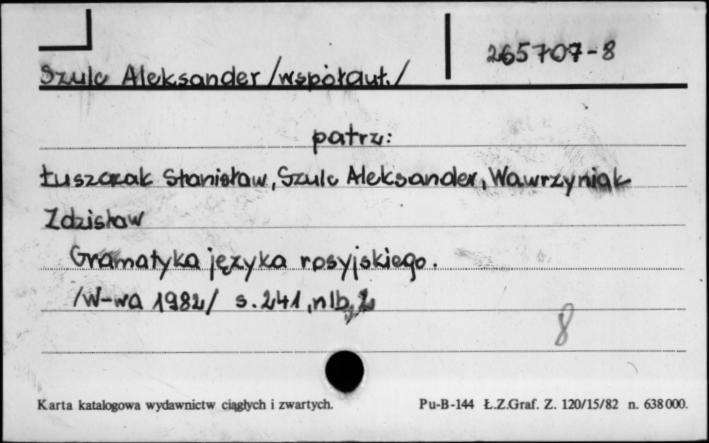 Szulc Aleksander /współaut./ 265707-8
patrz:
Łuszczak Stanisław, Szulc Aleksander, Wawrzyniak
Zdzisław
Gramatyka języka rosyjskiego.
/W-wa 1982/ s. 241, nlb,
8
Karta katalogowa wydawnictw ciągłych i zwartych. Pu-B-144 Ł.Z.Graf. Z. 120/15/82 n. 638 000.